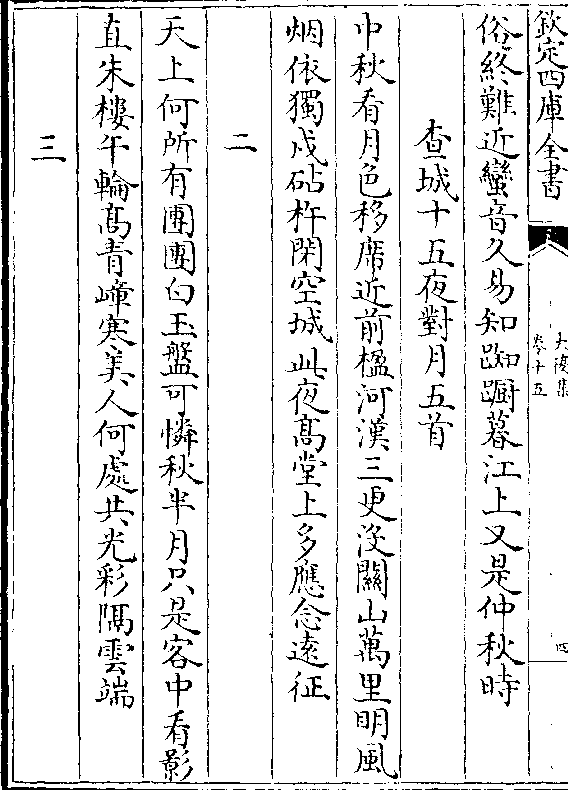 欽定四庫全書
大復集
卷十五
四
俗終難近蠻音久易知踟蹰暮江上又是仲秋時
查城十五夜對月五首
中秋看月色移席近前楹河漢三更没關山萬里明風
烟依獨戍砧杵閑空城此夜髙堂上多應念遠征
二
天上何所有團團白玉盤可憐秋半月只是客中看影
直朱樓午輪髙青嶂寒美人何處共光彩隔雲端
三